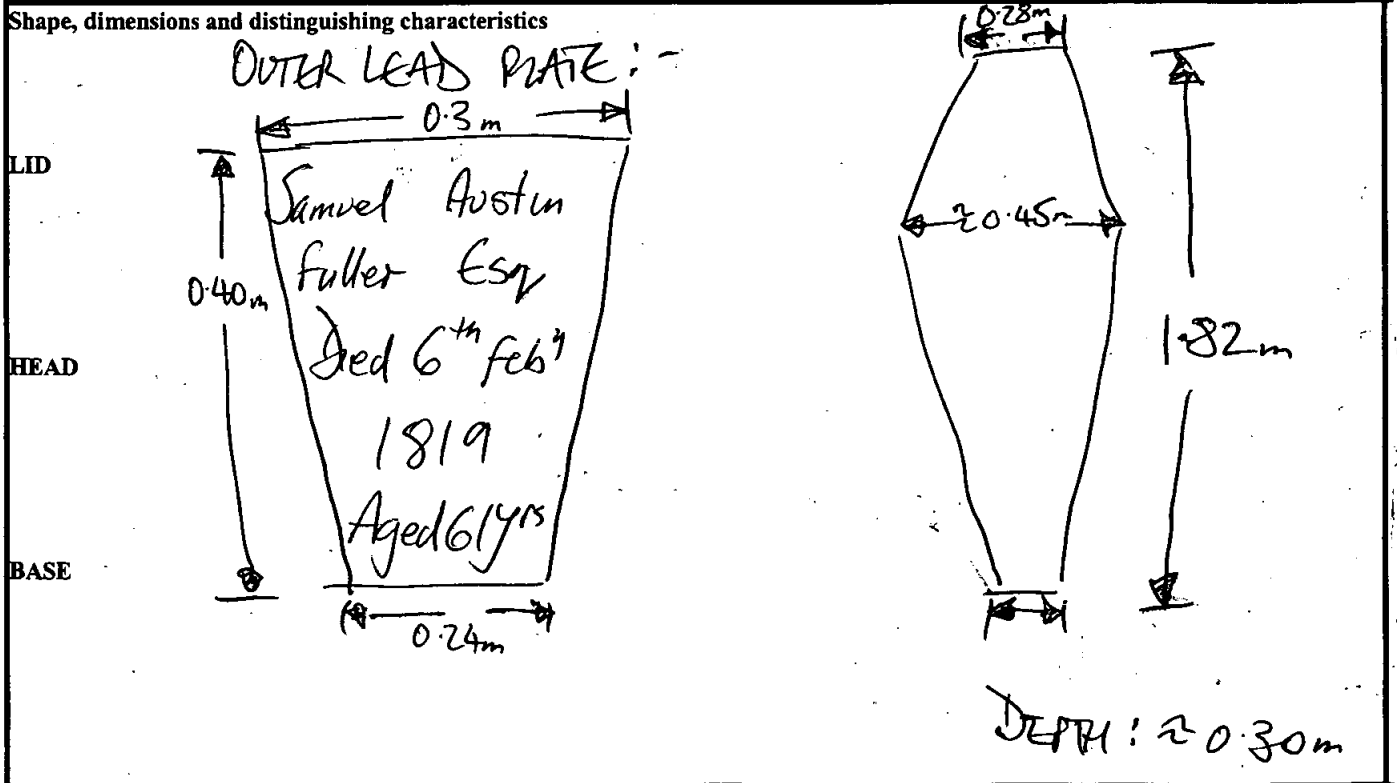 Shape, dimensions and distinguishing characteristics
OUTER LEAD PLATE:-
0.3m
LID
Samuel Austin
Fuller Esq
0.40m
Died 6th Feby
HEAD
1819
Aged 61 yrs
BASE
0.24m
0.28m
≈0.45m
1.82m
DEPTH: ≈ 0.30m